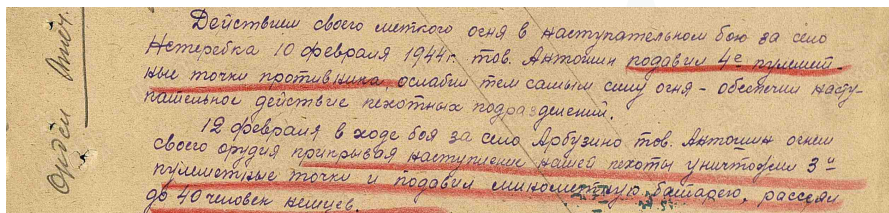 Действием своего меткого огня в наступательном бою за село
Нетеребка 10 февраля 1944г. тов. Антошин подавил 4е пулемет-
ные точки противника, ослабив тем самым силу огня - обеспечил насту-
пательное действие пехотных подразделений.
12 февраля в ходе боя за село Арбузино тов. Антошин огнем
своего орудия прикрывая наступление нашей пехоты уничтожил 3и
пулеметные точки и подавил минометную батарею, рассеял
до 40 человек немцев.
Орден Отеч.